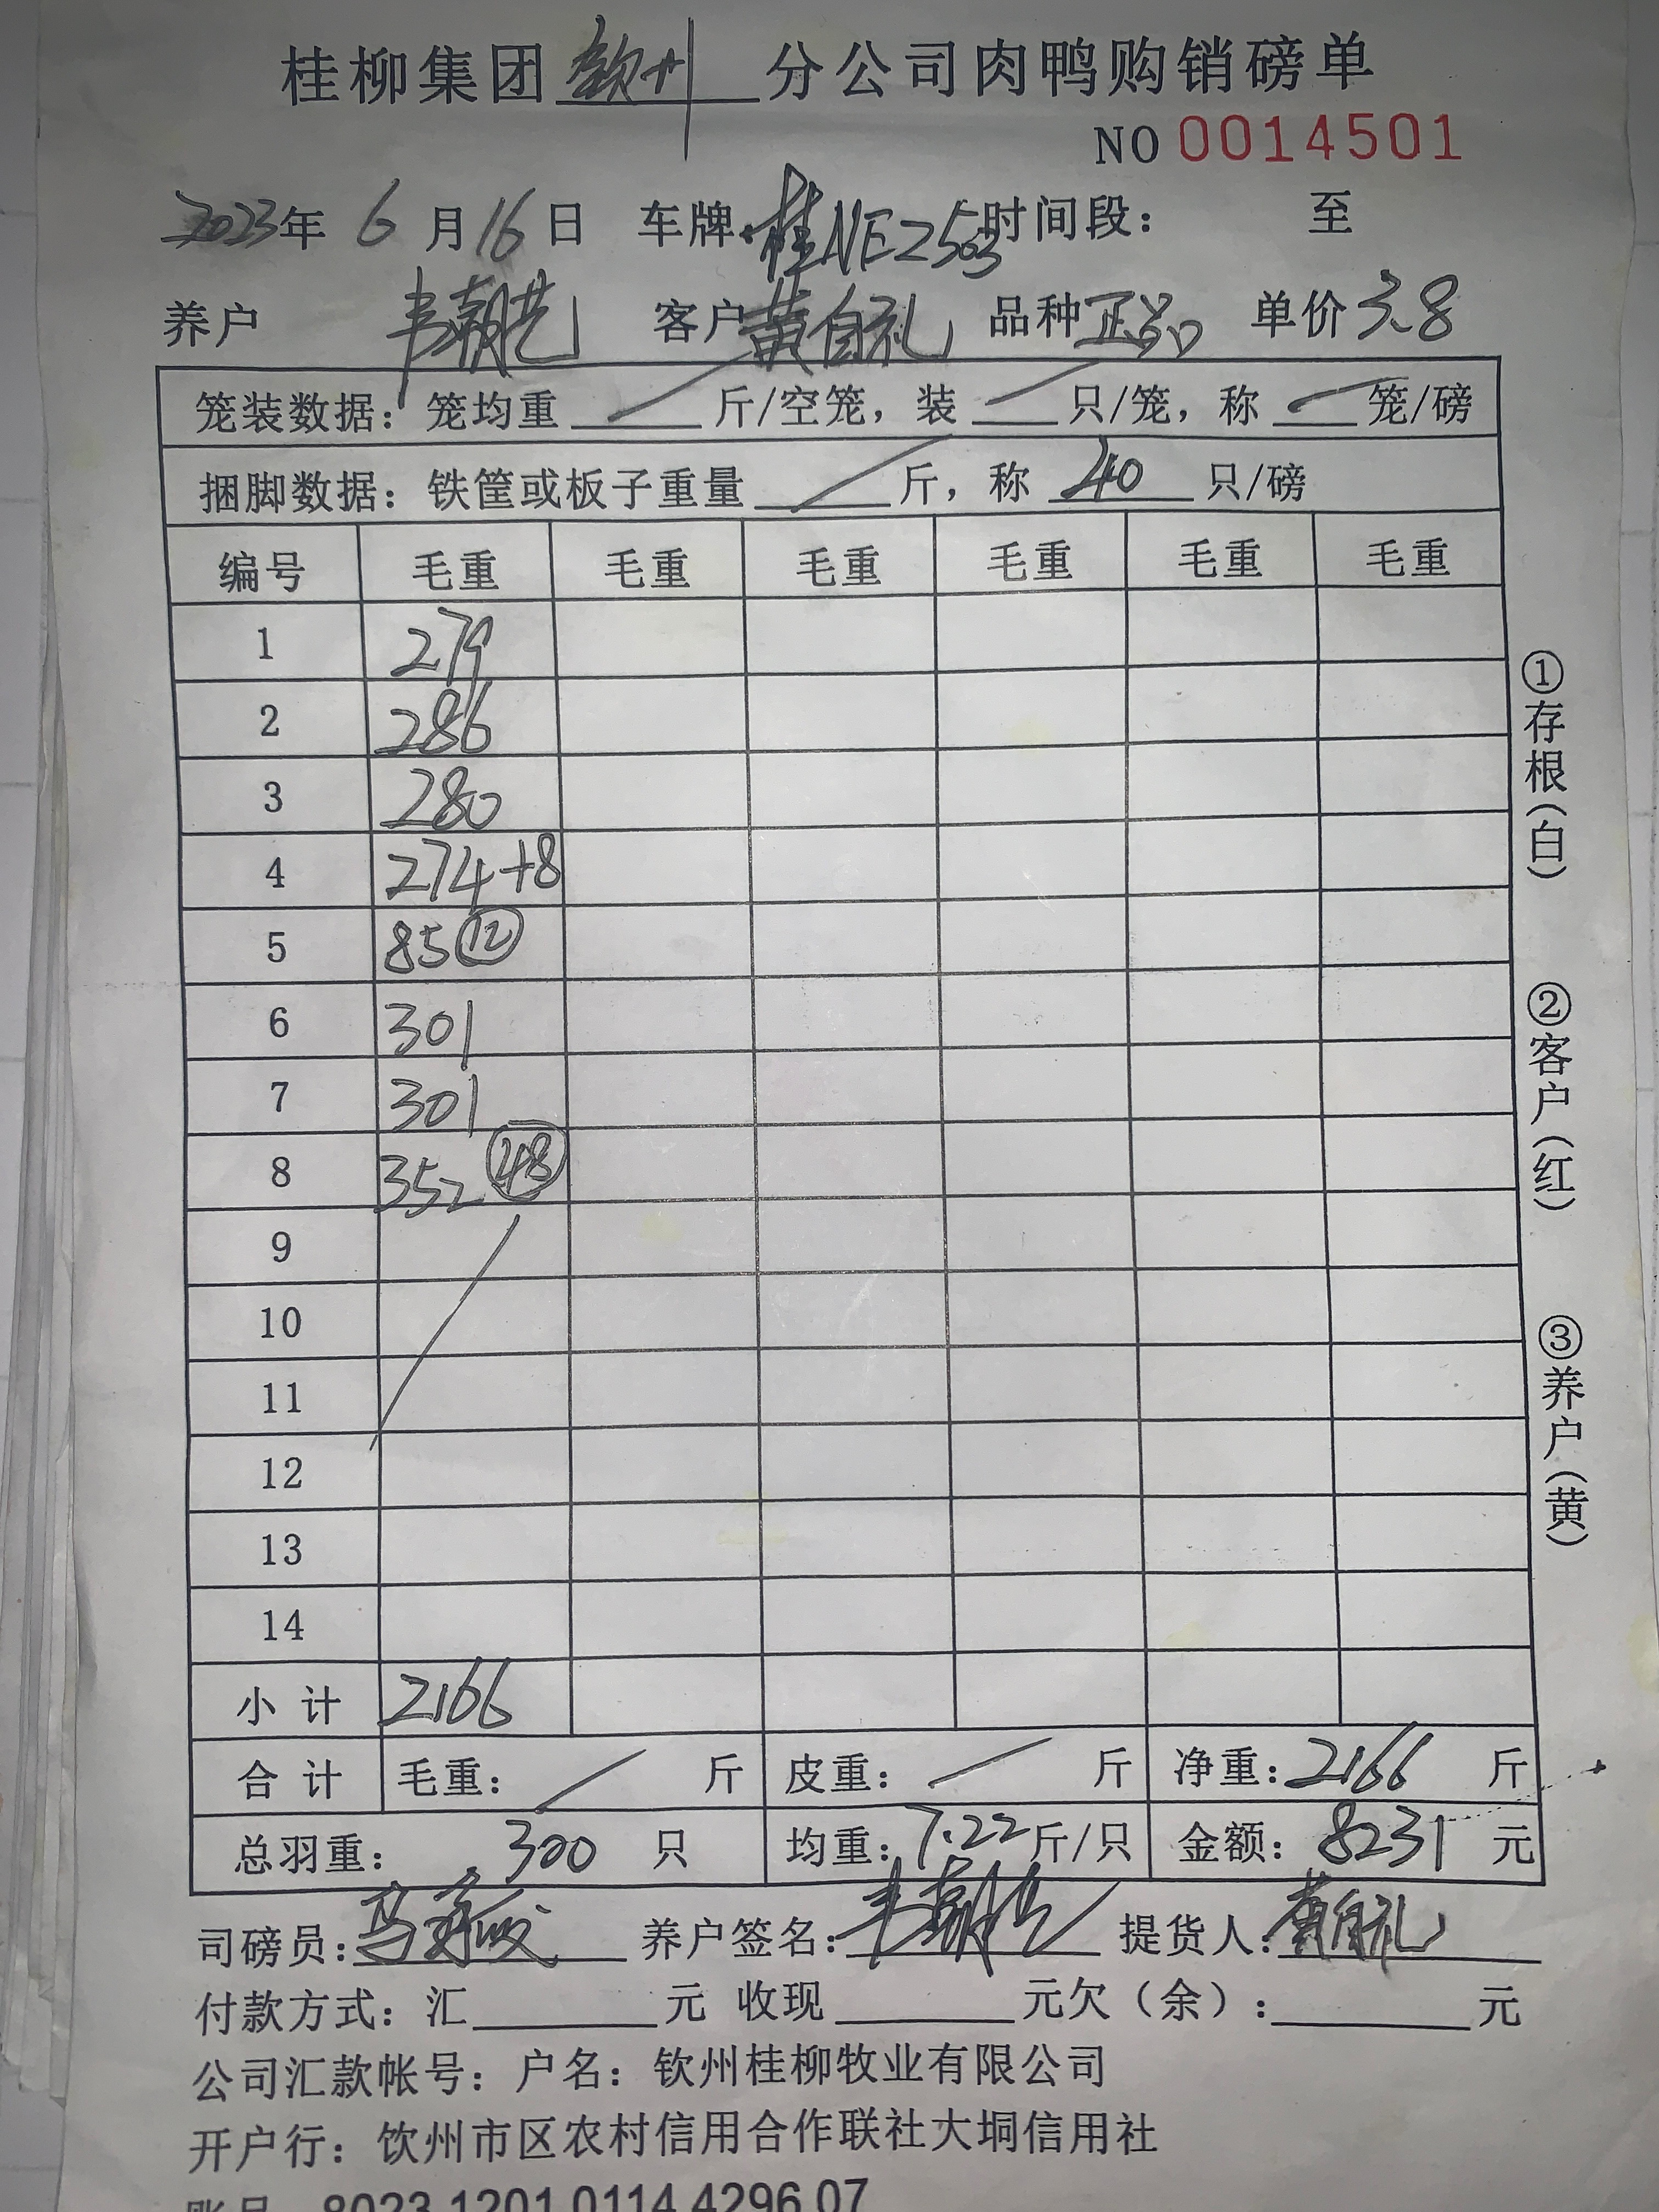 桂柳集团钦州分公司肉鸭购销磅单
NO 0014501
2023年 6 月 16 日 车牌:桂NE2503 时间段: 至
养户 韦朝艺 客户 黄自礼 品种 正品 单价 3.8
笼装数据: 笼均重 / 斤/空笼, 装 / 只/笼, 称 / 笼/磅
捆脚数据: 铁筐或板子重量 / 斤, 称 40 只/磅
编号 毛重 毛重 毛重 毛重 毛重 毛重
1 279
2 286
3 280
4 274+8
5 85 ⑫
6 301
7 301
8 352 ㊽
9
10
11
12
13
14
小计 2166
合计 毛重: / 斤 皮重: / 斤 净重: 2166 斤
总羽重: 300 只 均重: 7.22 斤/只 金额: 8231 元
司磅员: 马 养户签名: 韦朝艺 提货人: 黄自礼
付款方式: 汇____元 收现____元欠(余):____元
公司汇款帐号: 户名: 钦州桂柳牧业有限公司
开户行: 饮州市区农村信用合作联社大垌信用社
账号 8023 1201 0114 4296 07
①存根(白)
②客户(红)
③养户(黄)